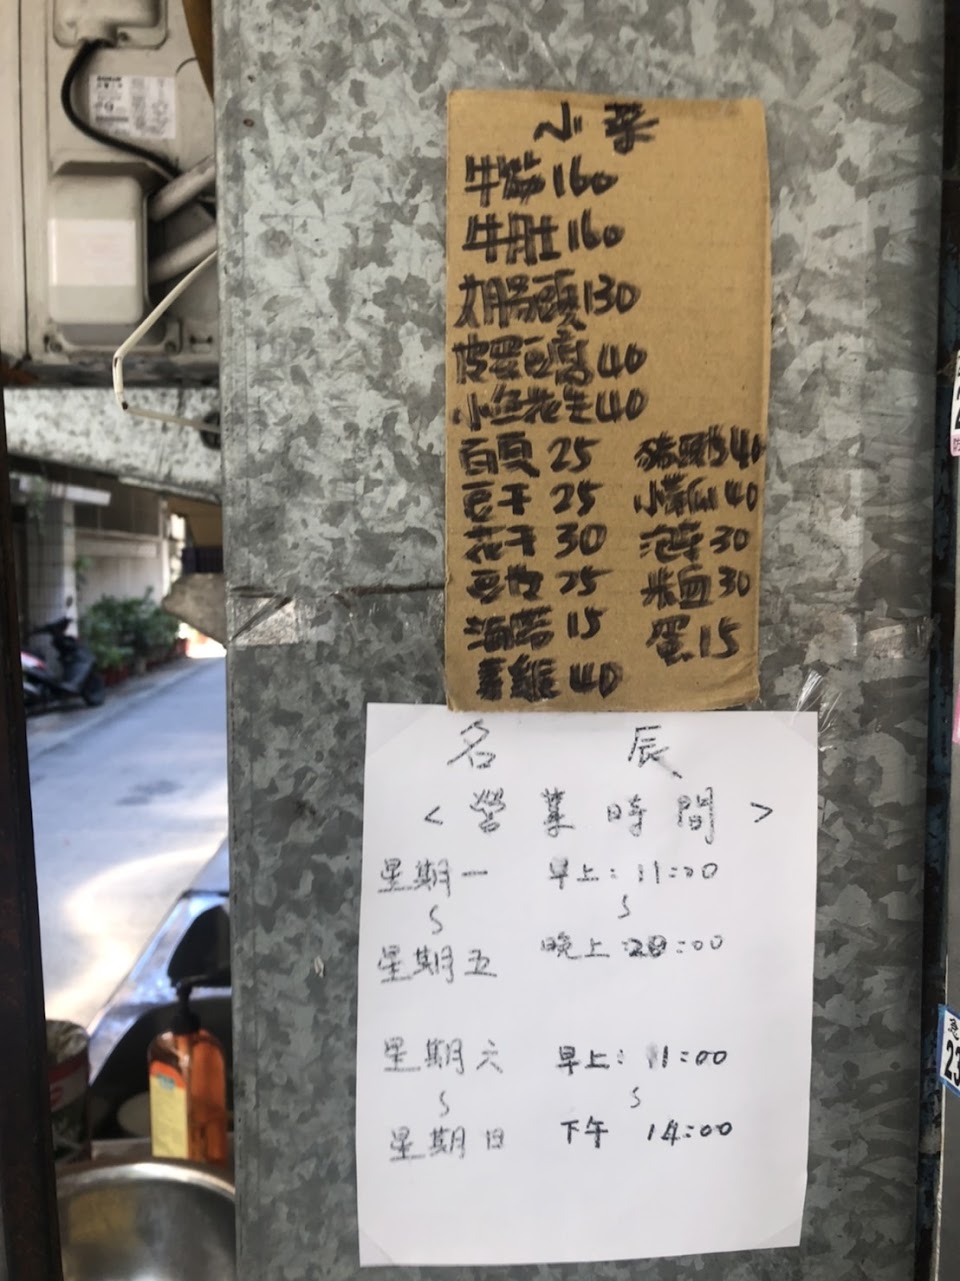 小菜
牛筋160
牛肚160
大腸頭130
皮蛋豆腐40
小魚花生40
百頁 25
豆干 25
花干 30
豆包 25
海帶 15
素雞 40
豬頭皮40
小黃瓜 40
泡菜 30
米血 30
蛋 15
名 辰
< 營業時間 >
星期一 早上: 11:00
~ ~
星期五 晚上:20:00
星期六 早上: 11:00
~ ~
星期日 下午 14:00
23